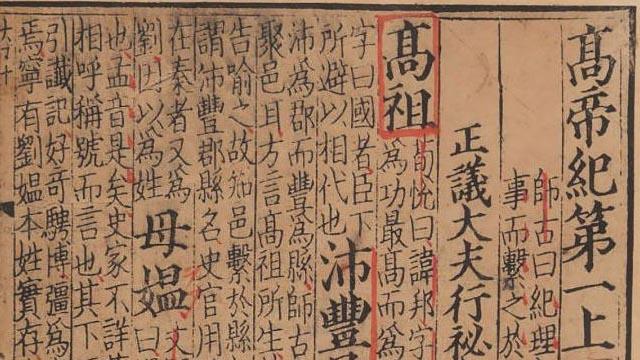 髙帝紀第一上
師古曰紀理
事而繫之於
正議大夫行祕
髙祖
荀悅曰諱邦字
為功最髙而為
字曰國者臣下
所避以相代也
沛豐
沛為郡而豐為縣師古
聚邑耳方言髙祖所生
告喻之故知邑繫於縣
謂沛豐郡縣名史官用
在秦者又為
劉因以為姓
母媼
文
曰
也孟音是矣史家不詳
相呼稱號而言也其下
引讖記好奇騁博彊為
焉寧有劉媼本姓實存